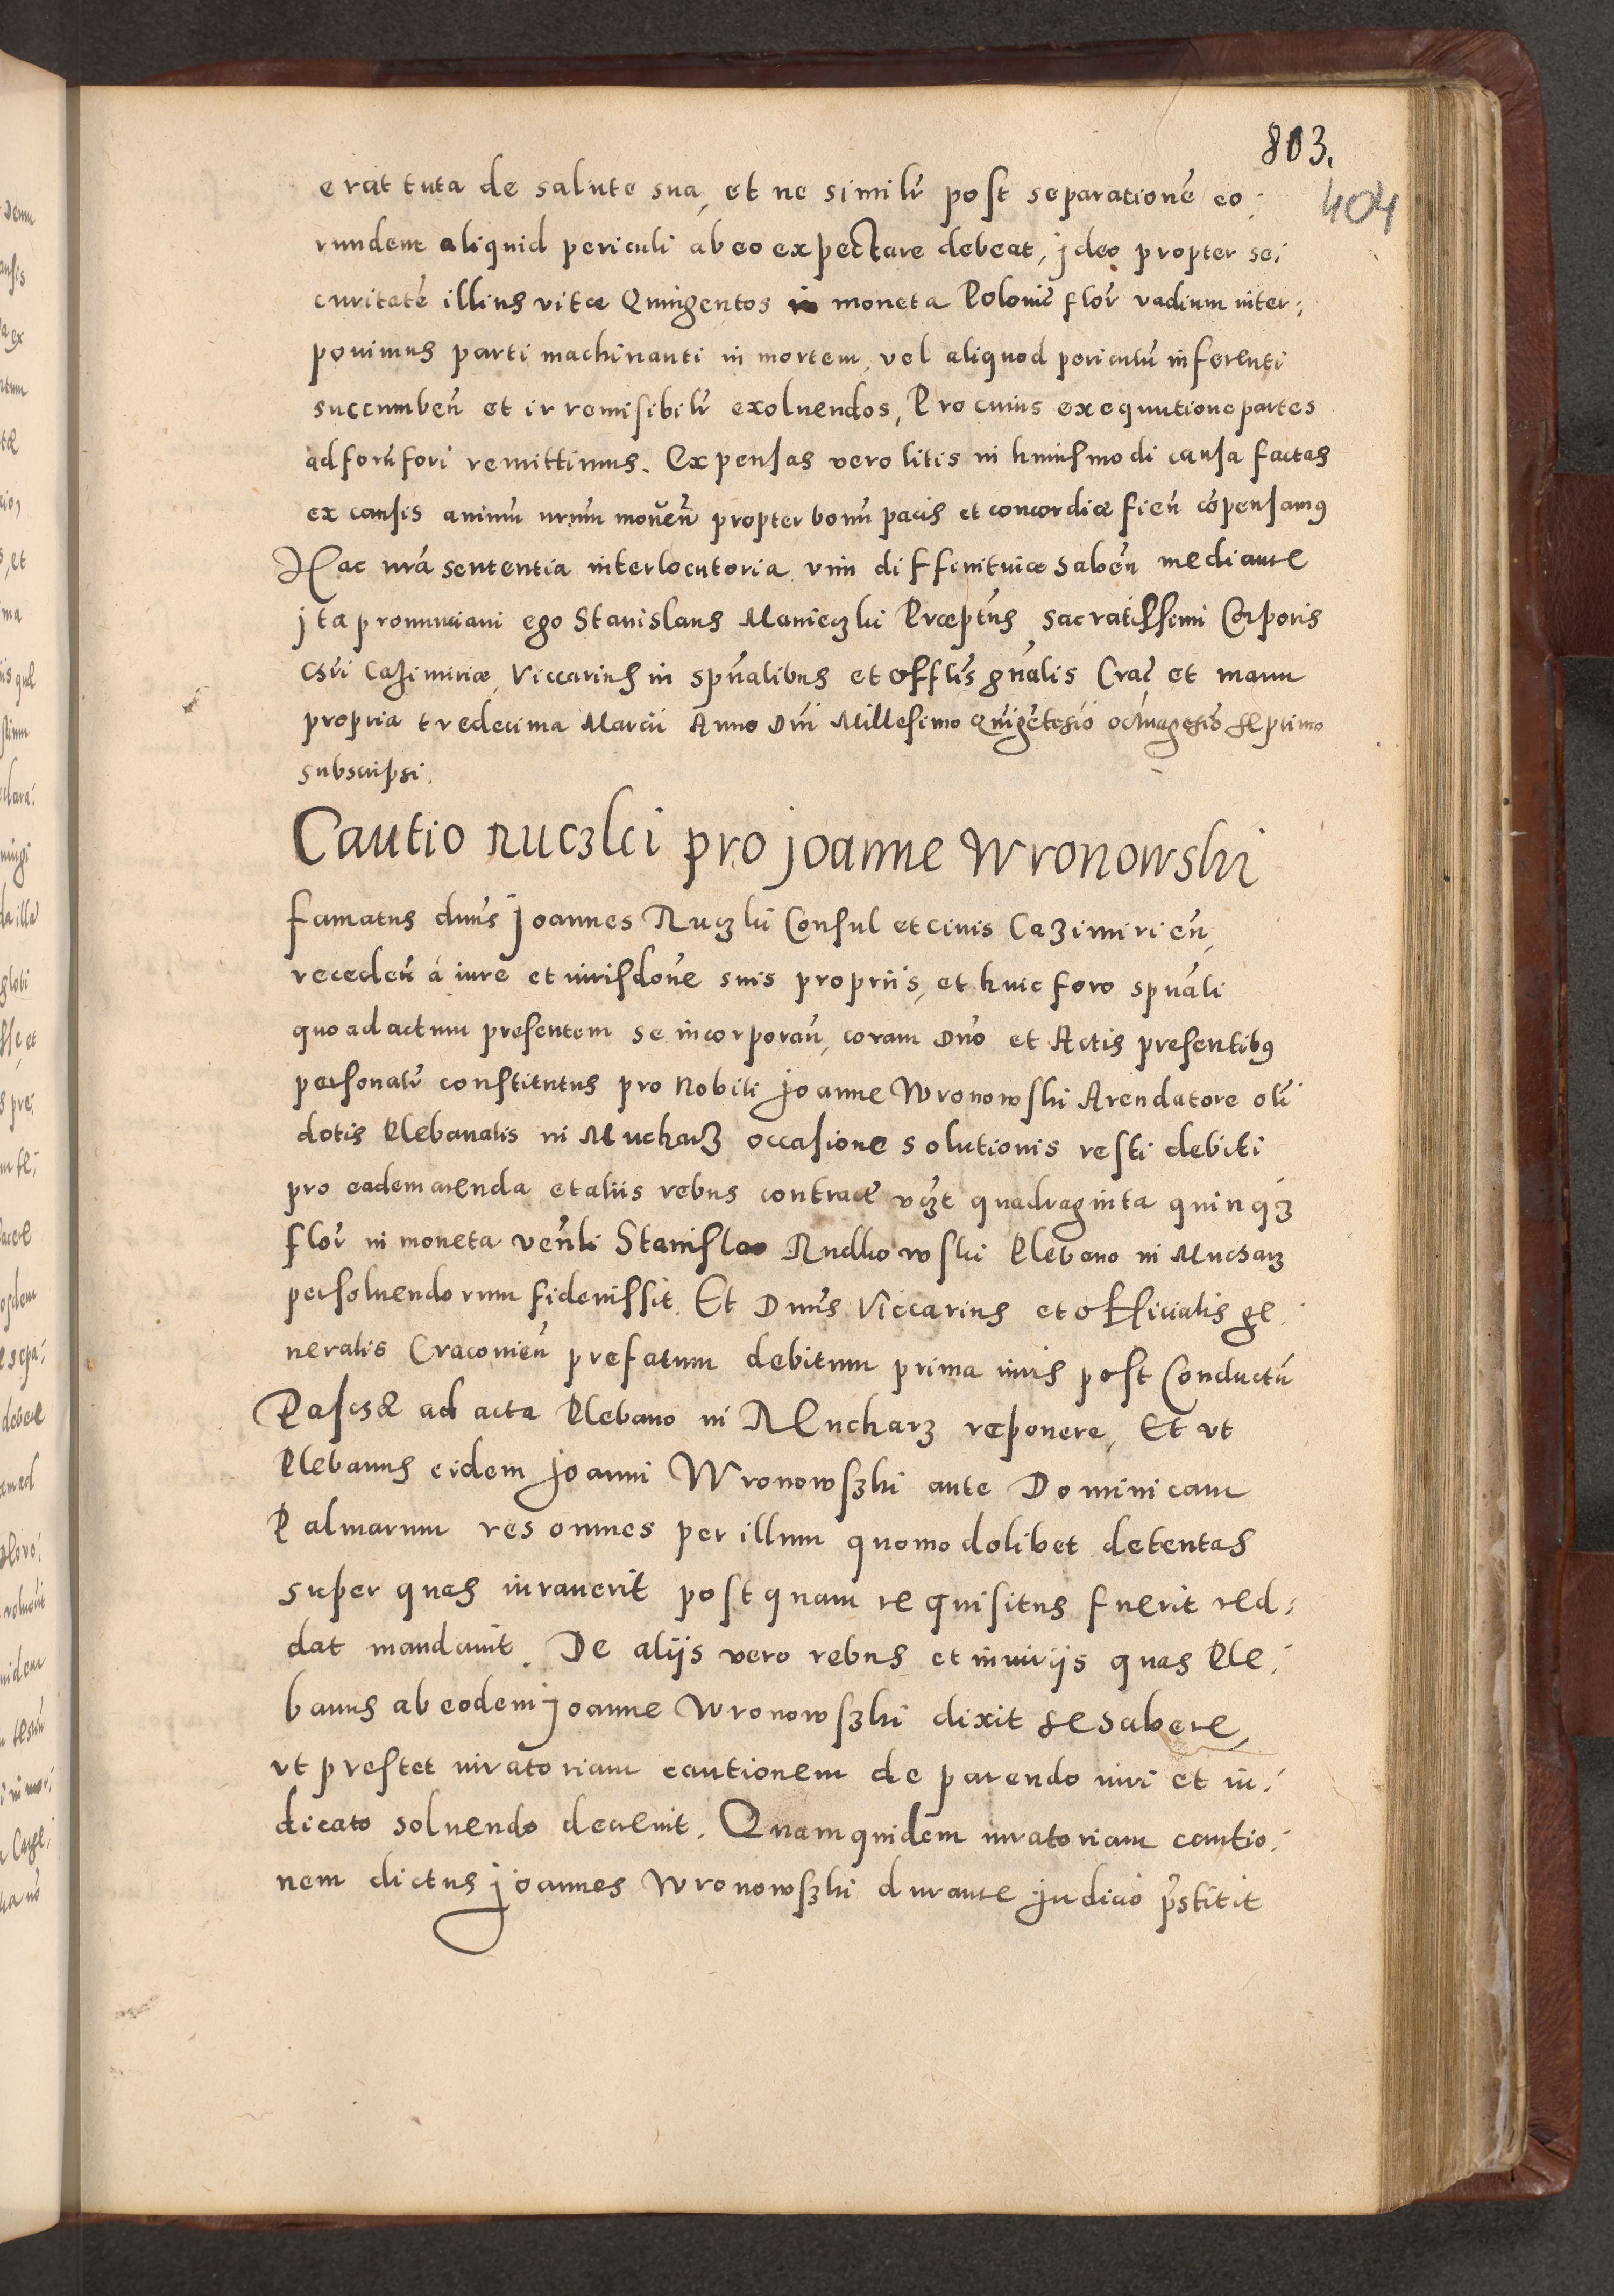 803.
404
erat tuta de salute sua, et ne similr̃ post separationẽ eo,
rundem aliquid periculi ab eo expectare debeat, jdeo propter se,
curitatẽ illius vitæ Quingentos in moneta Poloniẽ flor̃ vadium inter,
ponimus parti machinanti in mortem, vel aliquod periculũ inferenti
succumbeñ et irremisibilr̃ exoluendos, Pro cuius exequutione partes
ad forũ fori remittimus. Expensas vero litis in huiusmodi causa factas
ex causis animũ nr̃um moueñ propter bonũ pacis et concordiæ fieñ cõpensamus
Hac nr̃a sententia interlocutoria vim diffinitiuæ haben̄ mediante
jta pronunciaui ego Stanislaus Manieczki Præptus sacratissimi Corporis
Chri Cazimiriæ, Viccarius in spũalibus et offlis gñalis Crac̃ et manu
propria tredecima Marcii Anno Dñi Millesimo Quigẽtesio octuagesio septimo
subscripsi.
Cautio Ruczki pro joanne Wronowski
Famatus dnũs Joannes Ruczki Consul et ciuis Cazimirieñ,
recedeñ à iure et iurisdoñe suis propriis, et huic foro spũali
quo ad actum presentem se incorporañ, coram Dño et Actis presentibus
personalr̃ constitutus pro Nobili joanne Wronowski Arendatore oĩi
dotis Plebanalis in Mucharz occasione solutionis resti debiti
pro eadem arenda et aliis rebus contractẽ vczt quadraginta quinqz
flor̃ in moneta veñli Stanislao Rudkowski Plebano in Mucharz
persoluendorum fideiussit. Et Dnũs Viccarius et officialis ge,
neralis Cracouieñ prefatum debitum prima iuris post Conductũ
Paschæ ad acta Plebano in Mucharz reponere, Et vt
Plebanus eidem joanni Wronowszki ante Dominicam
Palmarum res omnes per illum quomodolibet detentas
super quas iurauerit postquam requisitus fuerit red,
dat mandauit. De aliis vero rebus et iniuriis quas Ple,
banus ab eodem joanne Wronowszki dixit se habere,
vt prestet iuratoriam cautionem de parendo iuri et iu,
dicato soluendo decreuit. Quamquidem iuratoriam cautio,
nem dictus joannes Wronowszki durante judicio p̃stitit